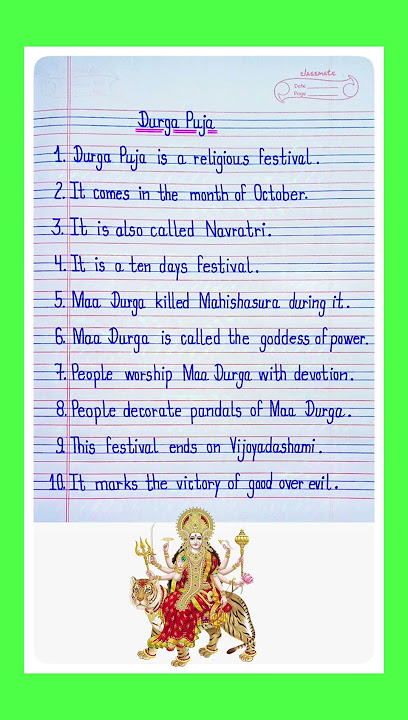 classmate
Date
Page
Durga Puja
1. Durga Puja is a religious festival.
2. It comes in the month of October.
3. It is also called Navratri.
4. It is a ten days festival.
5. Maa Durga killed Mahishasura during it.
6. Maa Durga is called the goddess of power.
7. People worship Maa Durga with devotion.
8. People decorate pandals of Maa Durga.
9. This festival ends on Vijoyadashami.
10. It marks the victory of good over evil.